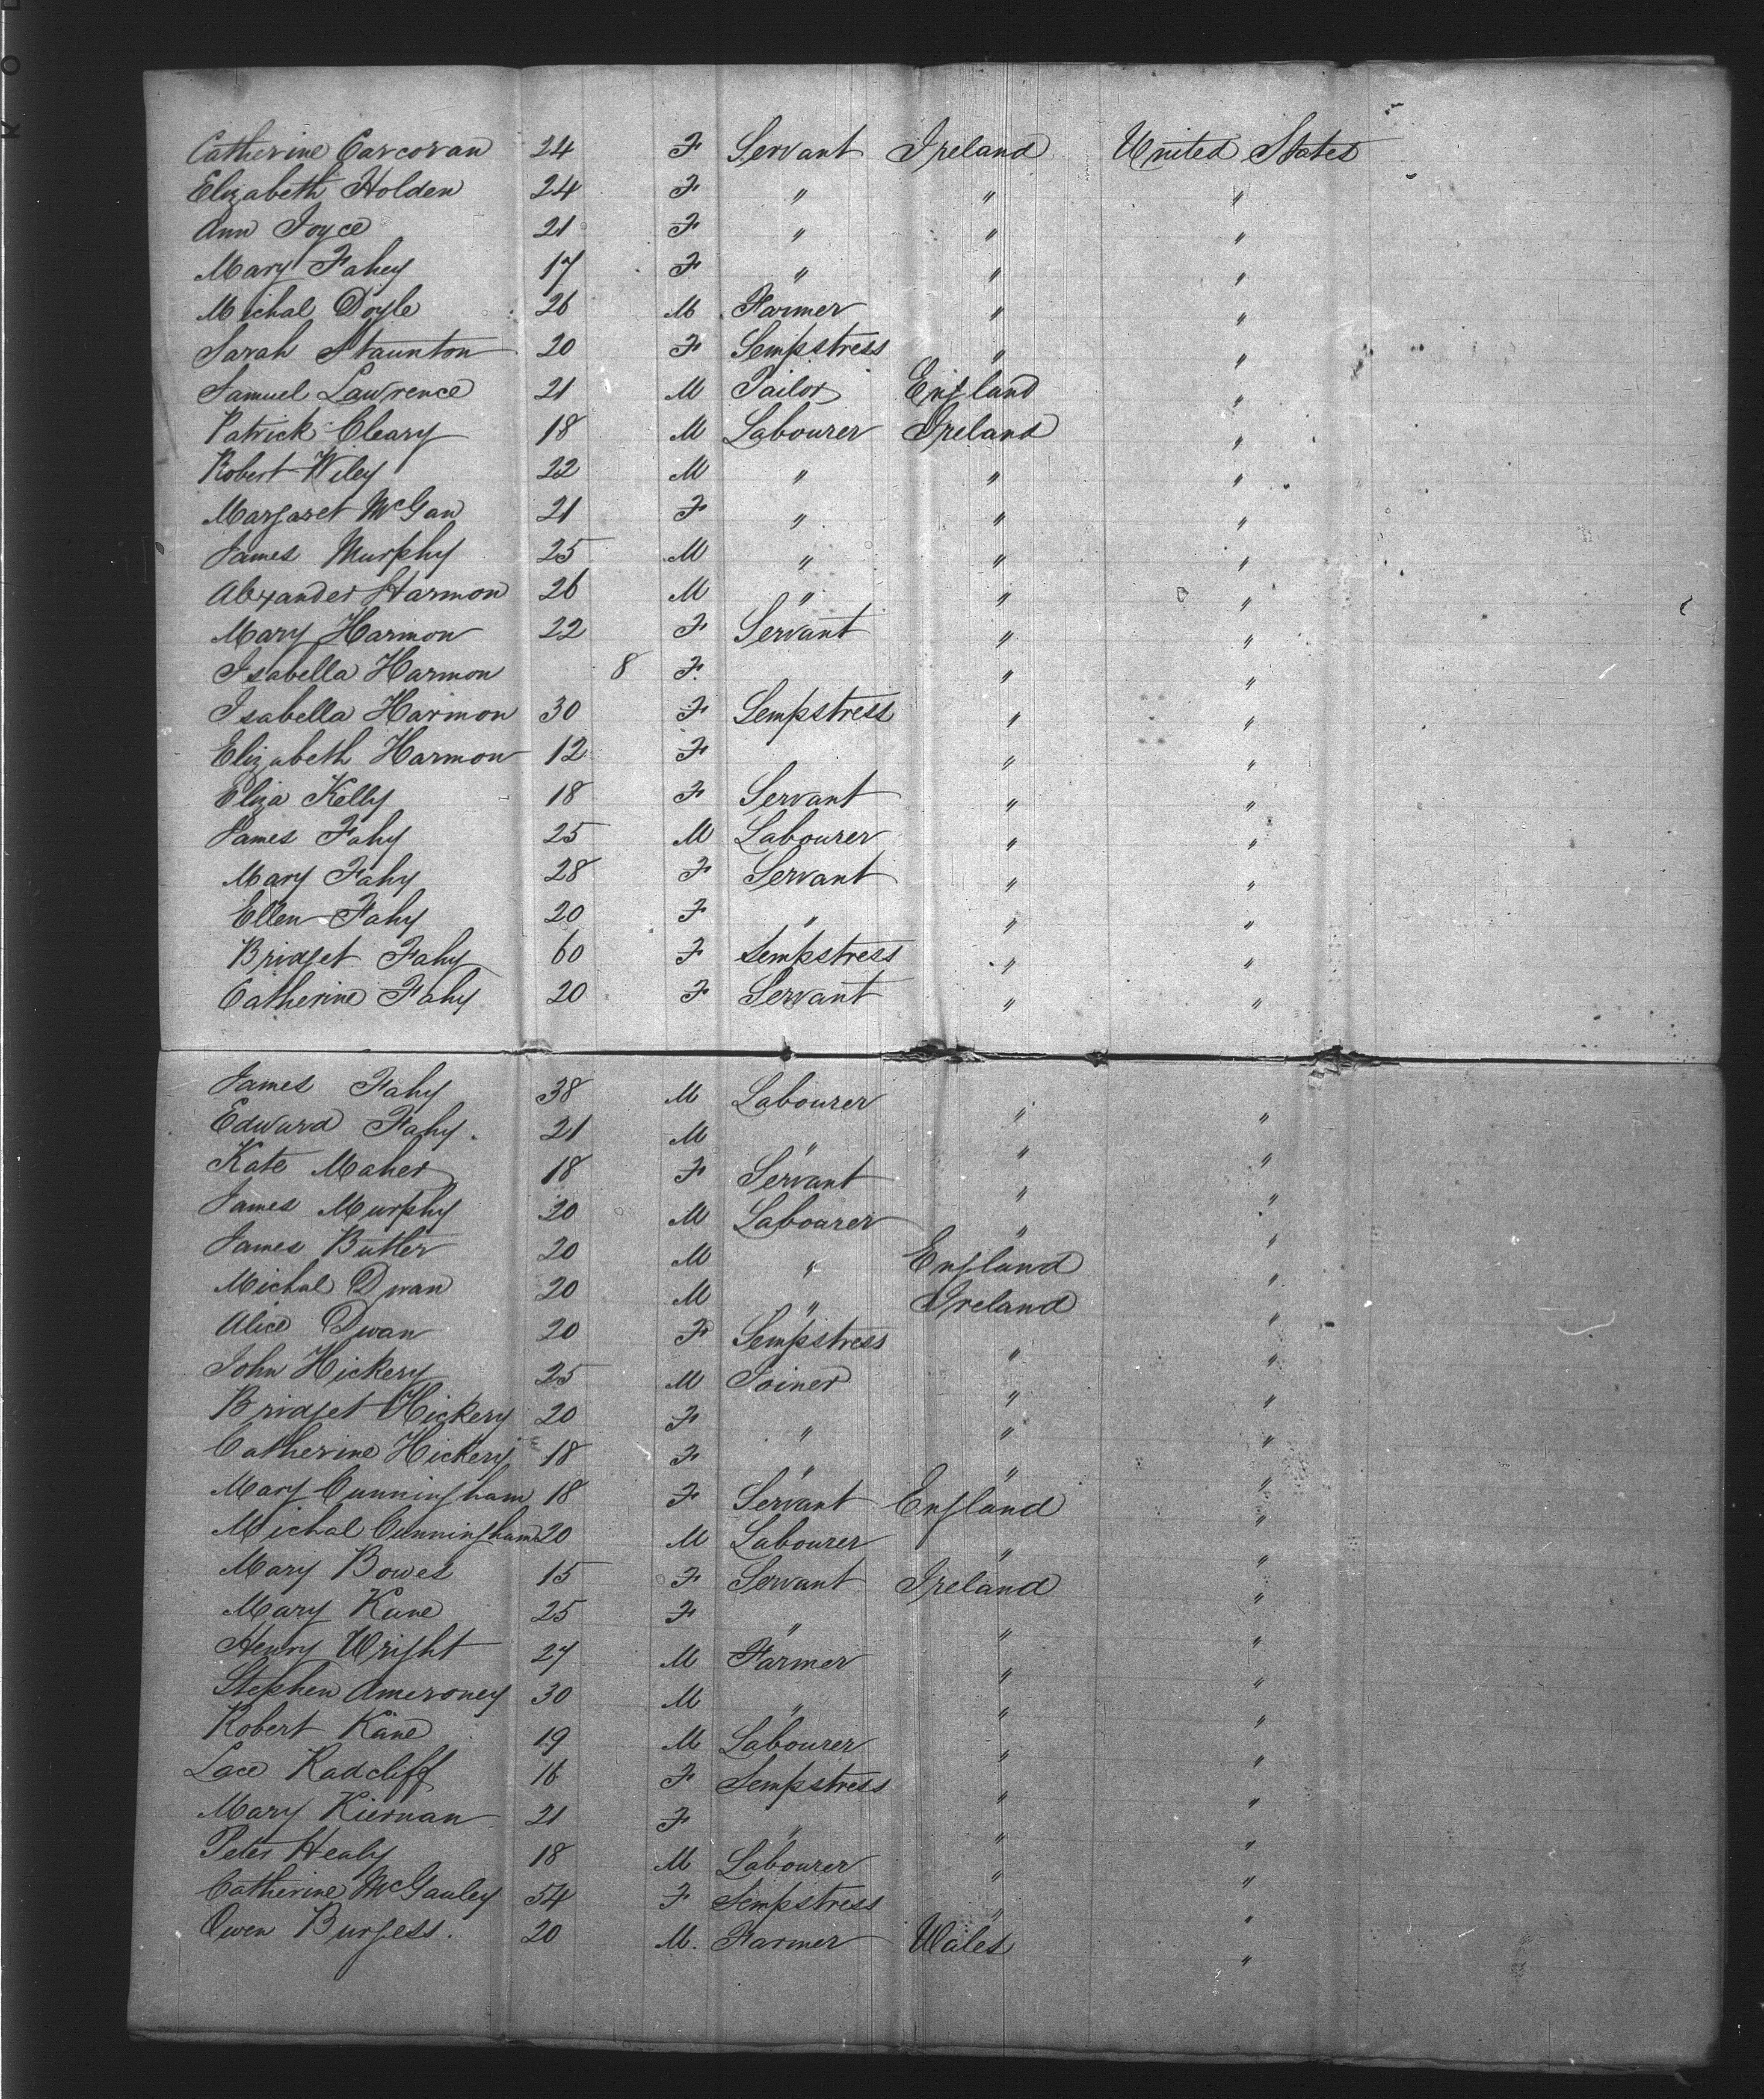 Catherine Carcoran 24 F Servant Ireland United States
Elizabeth Holden 24 F " " "
Ann Joyce 21 F " " "
Mary Fahey 17 F " " "
Michal Doyle 26 M Farmer " "
Sarah Staunton 20 F Sempstress " "
Samuel Lawrence 21 M Tailor England "
Patrick Cleary 18 M Labourer Ireland "
Robert Wiley 22 M " " "
Margaret McGan 21 F " " "
James Murphy 25 M " " "
Alexander Harmon 26 M " " "
Mary Harmon 22 F Servant " "
Isabella Harmon 8 F. " "
Isabella Harmon 30 F Sempstress " "
Elizabeth Harmon 12 F " "
Eliza Kelly 18 F Servant " "
James Fahy 25 M Labourer " "
Mary Fahy 28 F Servant " "
Ellen Fahy 20 F " " "
Bridget Fahy 60 F Sempstress " "
Catherine Fahy 20 F Servant " "
James Fahy 38 M Labourer " "
Edward Fahy. 21 M " " "
Kate Maher 18 F Servant " "
James Murphy 20 M Labourer " "
James Butler 20 M " England "
Michal Dwan 20 M " Ireland "
Alice Dwan 20 F Sempstress " "
John Hickery 25 M Joiner " "
Bridget Hickery 20 F " " "
Catherine Hickery 18 F " " "
Mary Cunningham 18 F Servant England "
Michal Cunningham 20 M Labourer " "
Mary Bowes 15 F Servant Ireland "
Mary Kane 25 F " " "
Henry Wright 27 M Farmer " "
Stephen Ameroney 30 M " " "
Robert Kane 19 M Labourer " "
Lace Radcliff 16 F Sempstress " "
Mary Kiernan 21 F " " "
Peter Healy 18 M Labourer " "
Catherine McGauley 54 F Sempstress " "
Owen Burgess. 20 M. Farmer Wales "